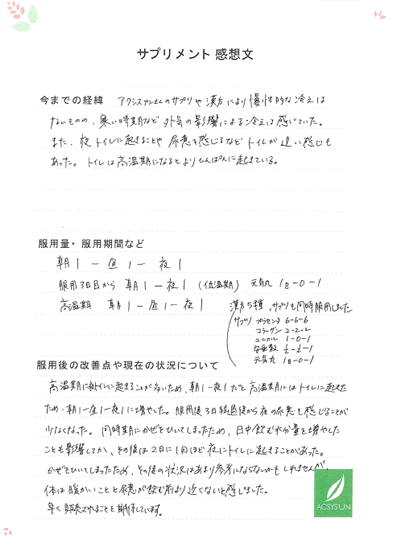 サプリメント 感想文
今までの経緯 アクシスアンさんのサプリや漢方により慢性的な冷えは
ないものの、寒い時期など外気の影響による冷えは感じていた。
また、夜トイレに起きることや尿意を感じるなどトイレが近い感じも
あった。トイレは高温期になるとよりひんぱんに起きている。
服用量・服用期間など
朝1 - 昼1 - 夜1
服用3日目から 朝1 - 夜1 (低温期) 元気丸 1g-0-1
高温期 朝1 - 昼1 - 夜1
漢方5種、サプリも同時服用しました
サプリ プラセンタ 6-6-6
コラーゲン 2-2-2
ユニカル 1-0-1
元気丸 1g-0-1
服用後の改善点や現在の状況について
高温期に夜トイレに起きることがないため、朝1-夜1だと高温期にはトイレに起きた
ため、朝1-昼1-夜1に増やした。服用後3日経過後から夜の尿意を感じることが
少なくなった。同時期にかぜをひいてしまったため、日中飲む水分量を増やした
ことも影響してか、その後は2日に1回ほど夜にトイレに起きることがあった。
かぜをひいてしまったため、その後の状況はあまり参考にならないかもしれませんが、
体は暖かいことと尿意が飲む前より近くないと感じました。
早く販売されることを期待しています。
ACSYSUN